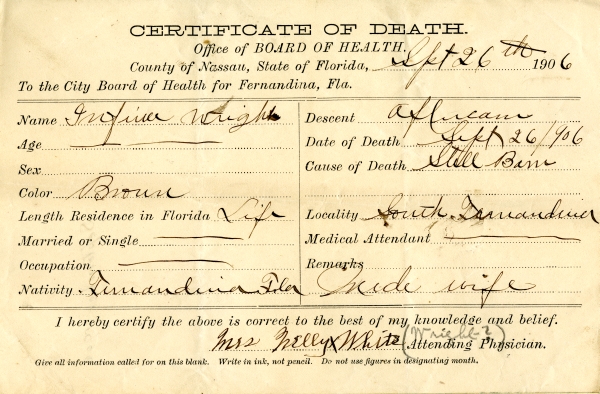 CERTIFICATE OF DEATH.
Office of BOARD OF HEALTH.
County of Nassau, State of Florida, Sept 26th 1906
To the City Board of Health for Fernandina, Fla.
Name Infint Wright
Age
Sex
Color Broun
Length Residence in Florida Life
Married or Single
Occupation
Nativity Fernandina Fla
Descent Affricam
Date of Death Sept 26/906
Cause of Death Still Born
Locality South Fernandina
Medical Attendant
Remarks
Mede wife
I hereby certify the above is correct to the best of my knowledge and belief.
Mrs Nelly White (Wrielle?) Attending Physician.
Give all information called for on this blank. Write in ink, not pencil. Do not use figures in designating month.